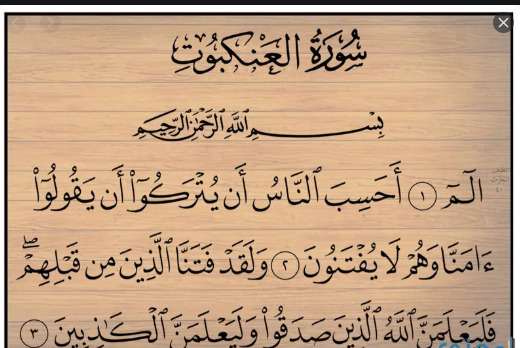 سُورَةُ العَنكَبُوتِ
بِسْمِ ٱللَّهِ ٱلرَّحْمَٰنِ ٱلرَّحِيمِ
الٓمٓ ۝١ أَحَسِبَ ٱلنَّاسُ أَن يُتْرَكُوٓا۟ أَن يَقُولُوٓا۟
ءَامَنَّا وَهُمْ لَا يُفْتَنُونَ ۝٢ وَلَقَدْ فَتَنَّا ٱلَّذِينَ مِن قَبْلِهِمْ ۖ
فَلَيَعْلَمَنَّ ٱللَّهُ ٱلَّذِينَ صَدَقُوا۟ وَلَيَعْلَمَنَّ ٱلْكَٰذِبِينَ ۝٣